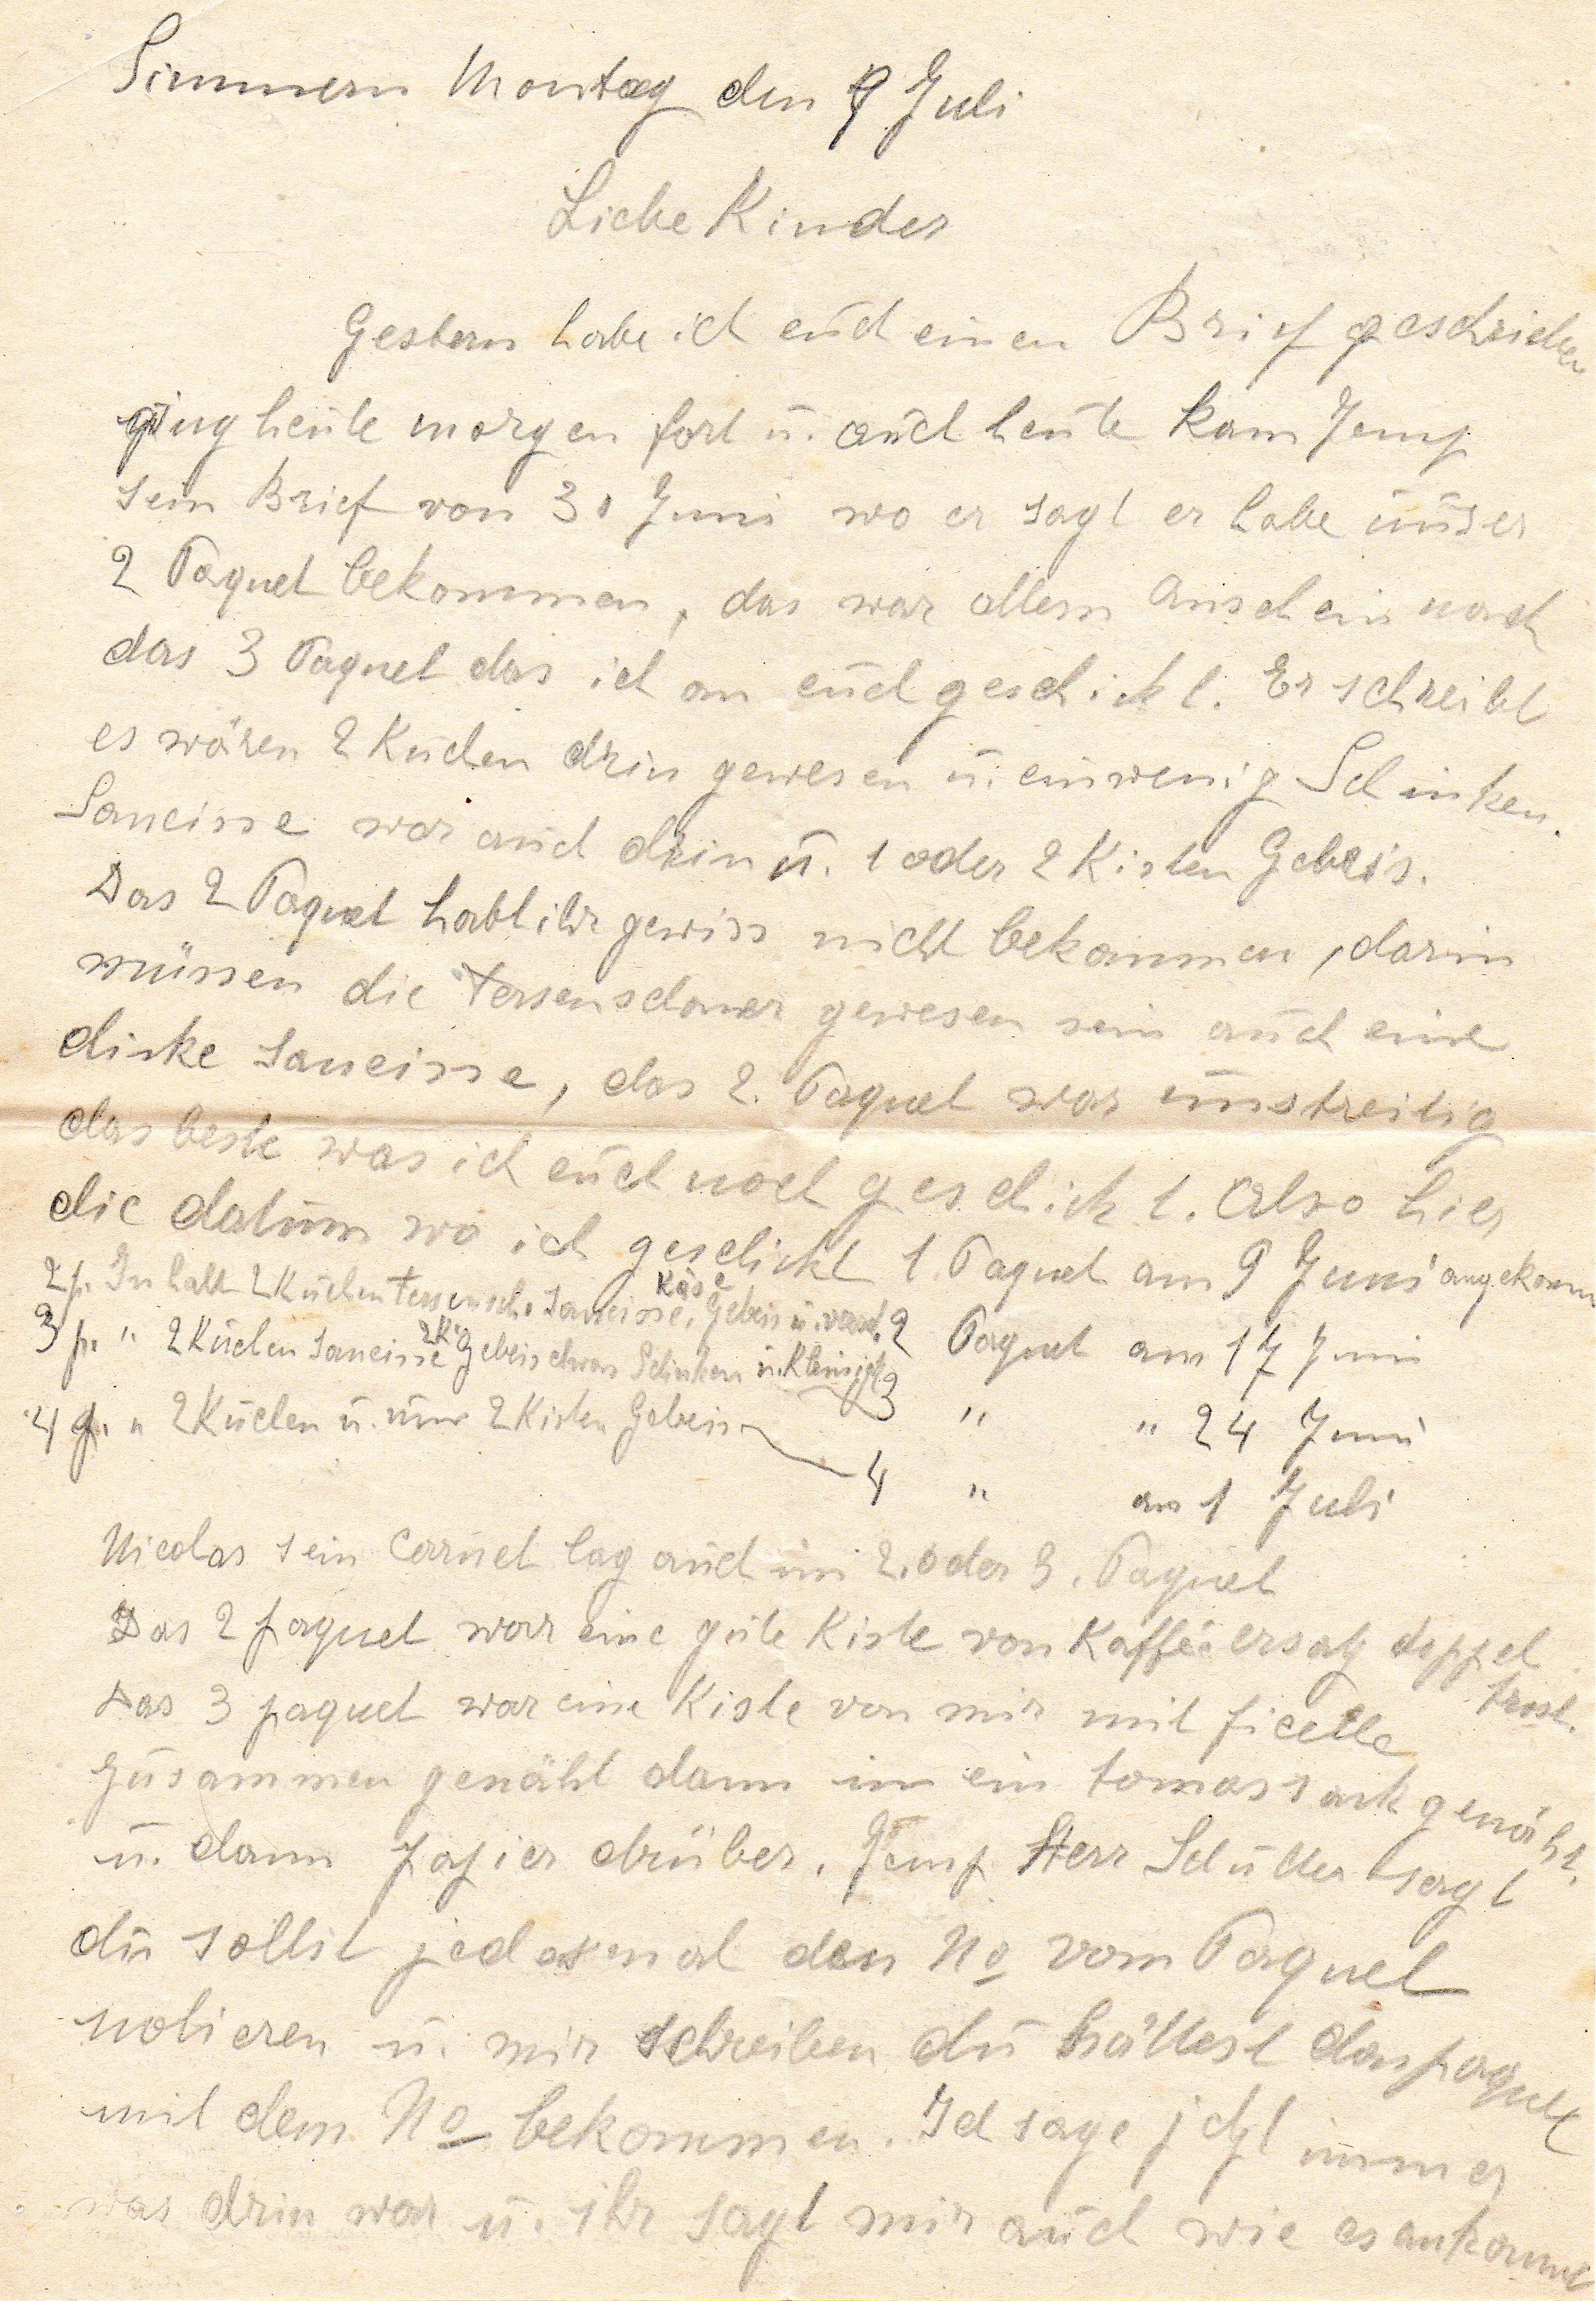 Simmern Montag den 9 Juli
Liebe Kinder
Gestern habe ich eüch einen Brief geschrieben
ging heüte morgen fort ü. aüch heüte kam Jemp
sein Brief von 30 Juni wo er sagt er habe ünser
2 Paquet bekommen, das war allem Anschein nach
das 3 Paquet das ich an eüch geschickt. Er schreibt
es wären 2 Kuchen drin gewesen ü. einwenig Schinken.
Saucisse war auch drin ü. 1 oder 2 Kisten Gebeis.
Das 2 Paquet habt ihr gewiss nicht bekommen, darin
müssen die gewesen sein aüch eine
dicke saucisse, das 2. Paquet war ünstreitig
das beste was ich eüch noch geschickt. Also hier
die datüm wo ich geschickt 1 Paquet am 9 Juni angekomm
2 p. Inhalt 2 Küchen saucisse, Käse Gebeis ü.
2 Paquet am 17 Juni
3 p. " 2 Küchen saucisse 2 K. Gebeis etwas Schinken ü. Kleinigk.
3 " " 24 Juni
4 p. " 2 Küchen ü. nür 2 Kisten Gebeis
4 " am 1 Juli
Nicolas sein Carnet lag aüch im 2. oder 3. Paquet
Das 2 paquet war eine güte Kiste von Kafféeersatz doppel
Das 3 paquet war eine Kiste von mir mit ficelle
züsammen genäht dann in ein tomassack genäht.
ü. dann papier drüber. Jemp Herr Schütter sagt
dü sollst jedesmal den No vom Paquet
notieren ü. mir schreiben dü hättest das paquet
mit dem No bekommen. Ich sage jetzt immer
was drin war ü. ihr sagt mir aüch wie es ankommt